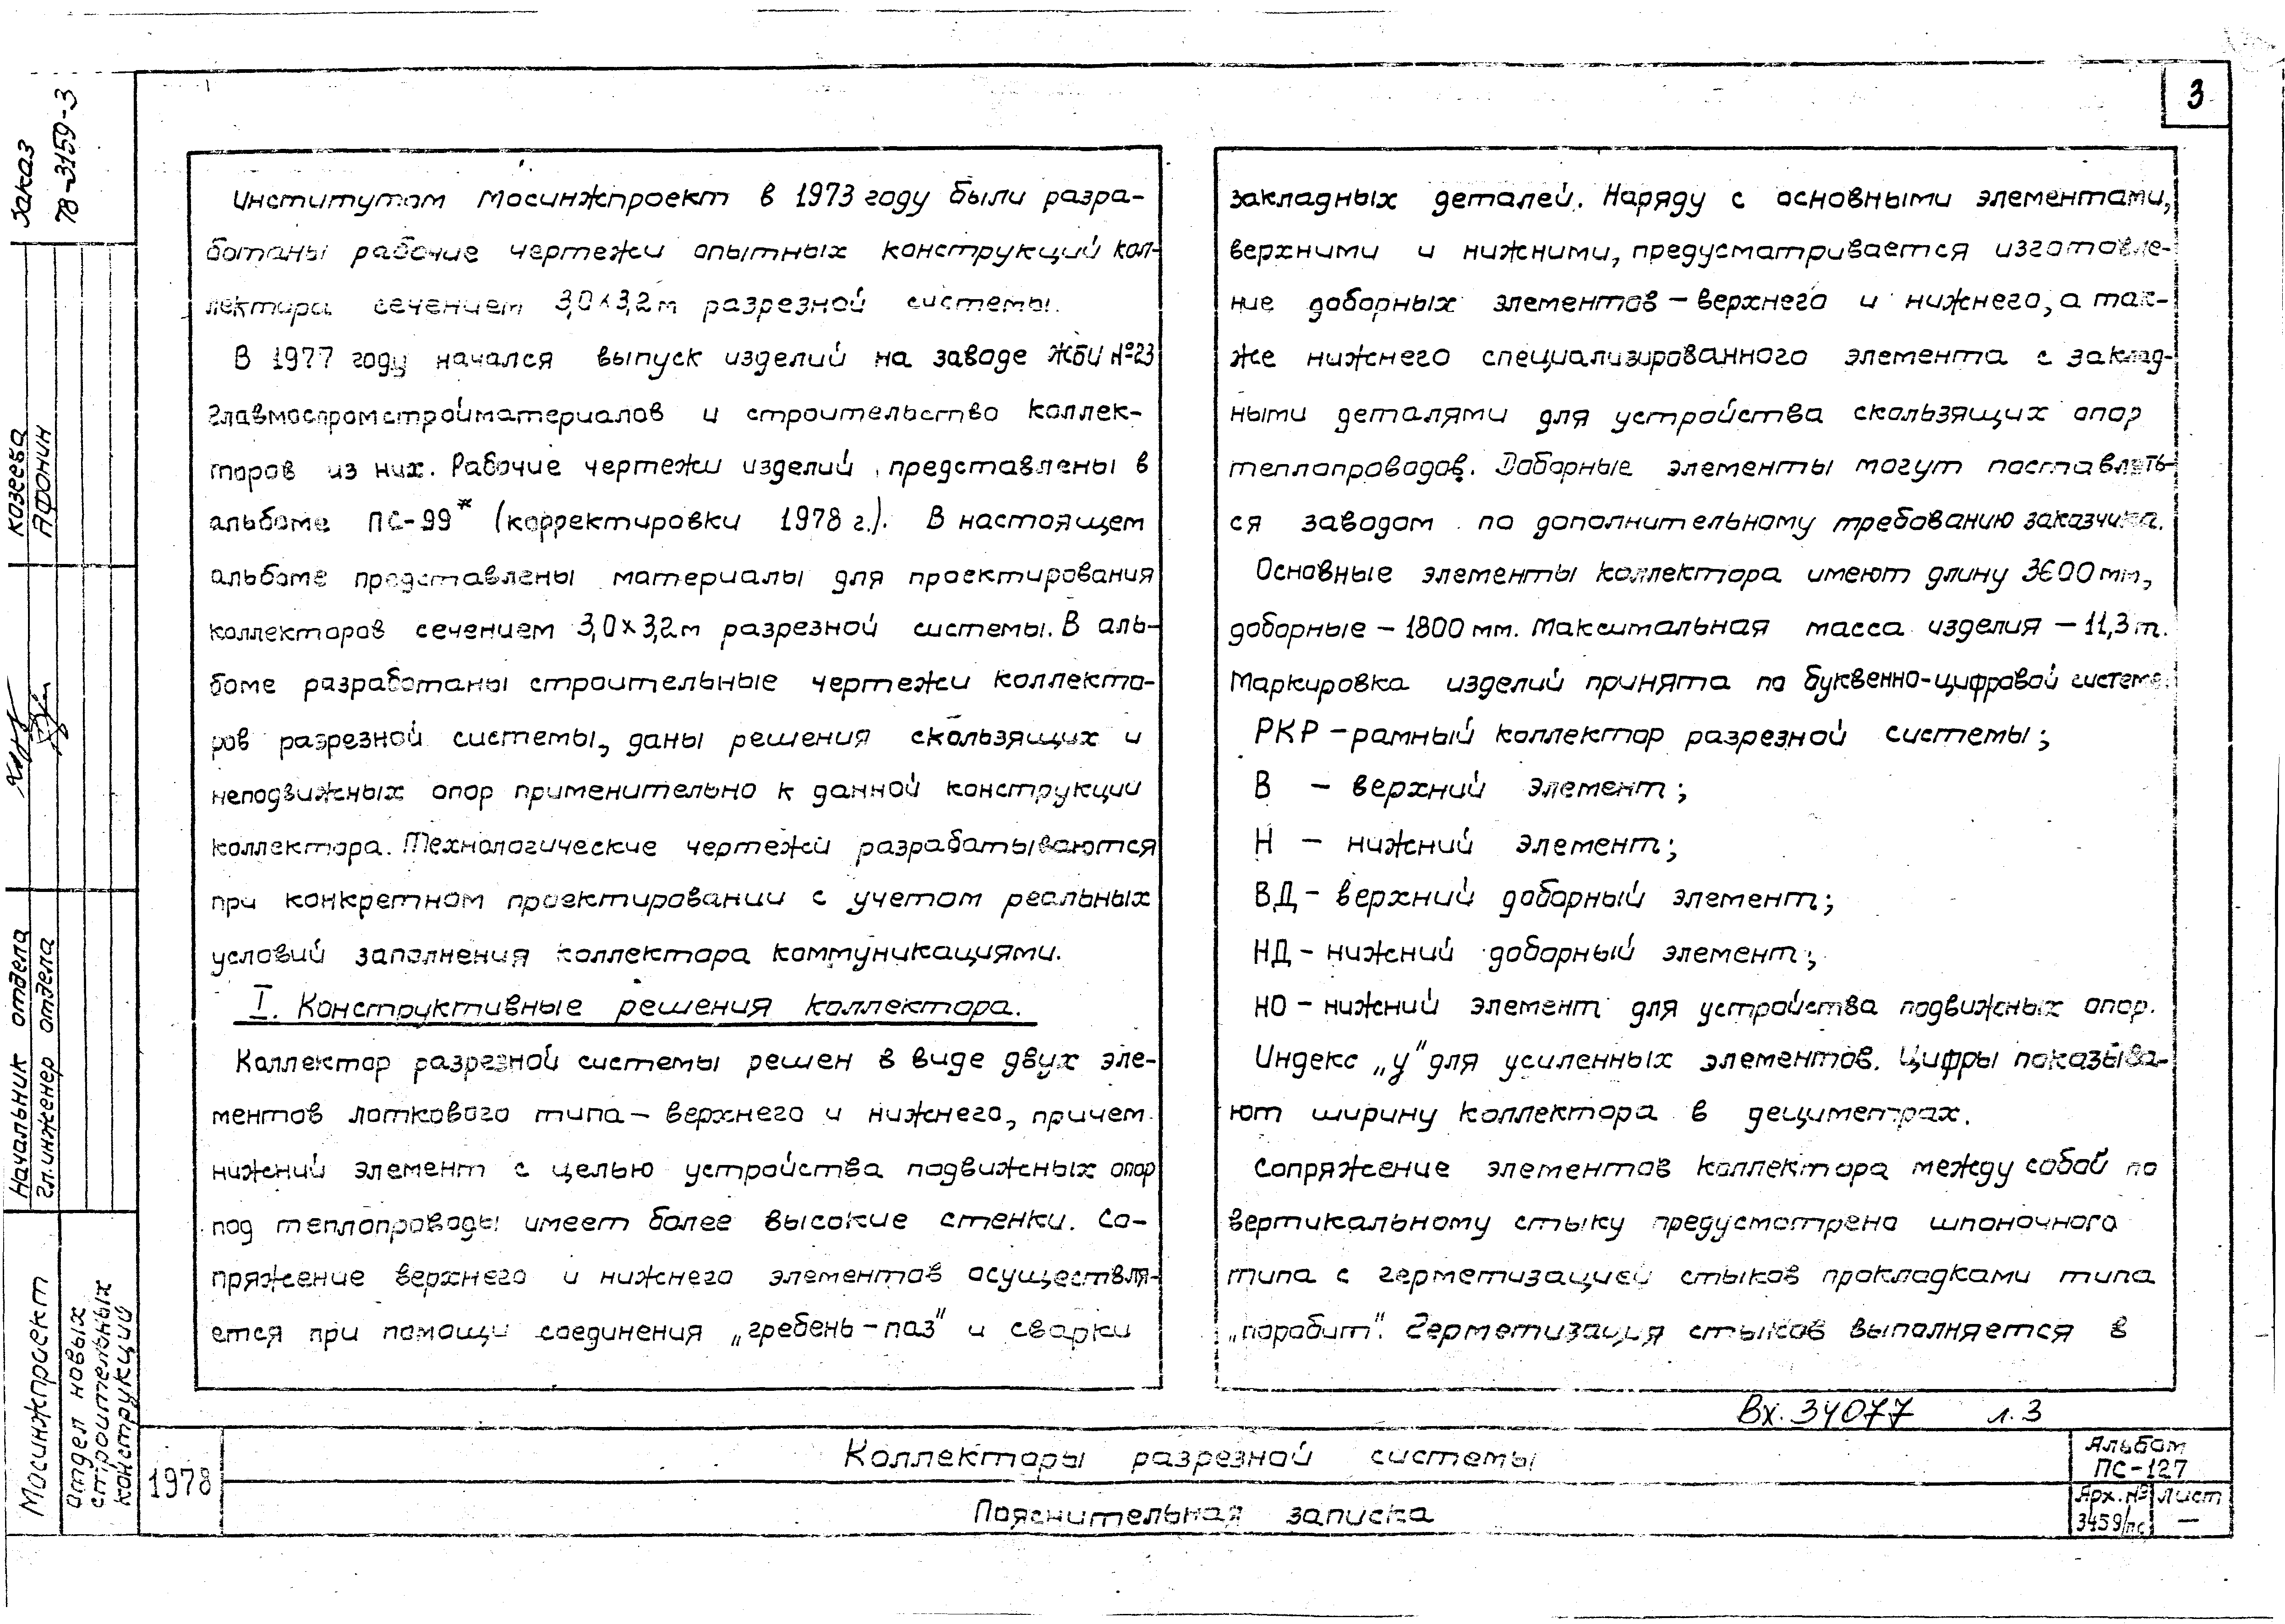 3
Заказ
78-3159-3
Козеева
Афонин
Начальник отдела
Гл. инженер отдела
Мосинжпроект
Отдел новых
строительных
конструкций
Институтом Мосинжпроект в 1973 году были разра-
ботаны рабочие чертежи опытных конструкций кол-
лектора сечением 3,0×3,2м разрезной системы.
В 1977 году начался выпуск изделий на заводе ЖБИ №23
Главмоспромстройматериалов и строительство коллек-
торов из них. Рабочие чертежи изделий представлены в
альбоме ПС-99* (корректировки 1978 г.). В настоящем
альбоме представлены материалы для проектирования
коллекторов сечением 3,0×3,2м разрезной системы. В аль-
боме разработаны строительные чертежи коллекто-
ров разрезной системы, даны решения скользящих и
неподвижных опор применительно к данной конструкции
коллектора. Технологические чертежи разрабатываются
при конкретном проектировании с учетом реальных
условий заполнения коллектора коммуникациями.
I. Конструктивные решения коллектора.
Коллектор разрезной системы решен в виде двух эле-
ментов лоткового типа – верхнего и нижнего, причем
нижний элемент с целью устройства подвижных опор
под теплопроводы имеет более высокие стенки. Со-
пряжение верхнего и нижнего элементов осуществля-
ется при помощи соединения „гребень – паз" и сварки
закладных деталей. Наряду с основными элементами,
верхними и нижними, предусматривается изготовле-
ние доборных элементов – верхнего и нижнего, а так-
же нижнего специализированного элемента с заклад-
ными деталями для устройства скользящих опор
теплопроводов. Доборные элементы могут поставлять-
ся заводом по дополнительному требованию заказчика.
Основные элементы коллектора имеют длину 3600 мм,
доборные – 1800 мм. Максимальная масса изделия – 11,3 т.
Маркировка изделий принята по буквенно-цифровой системе:
РКР – рамный коллектор разрезной системы;
В – верхний элемент;
Н – нижний элемент;
ВД – верхний доборный элемент;
НД – нижний доборный элемент;
НО – нижний элемент для устройства подвижных опор.
Индекс „у" для усиленных элементов. Цифры показыва-
ют ширину коллектора в дециметрах.
Сопряжение элементов коллектора между собой по
вертикальному стыку предусмотрено шпоночного
типа с герметизацией стыков прокладками типа
„поробит". Герметизация стыков выполняется в
Вх. 34077 л. 3
1978
Коллекторы разрезной системы
Пояснительная записка
Альбом
ПС-127
Арх. № Лист
3459/пс —